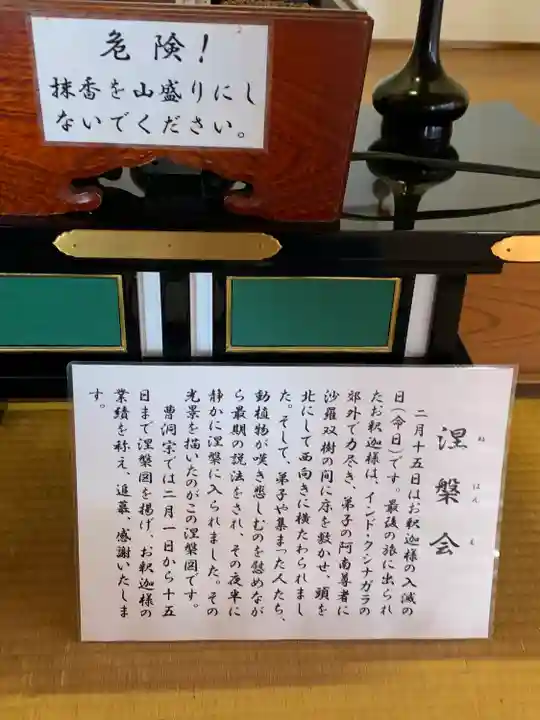 危険！
抹香を山盛りにし
ないでください。
涅槃会
ねはんえ
二月十五日はお釈迦様の入滅の
日(命日)です。最後の旅に出られ
たお釈迦様は、インド・クシナガラの
郊外で力尽き、弟子の阿南尊者に
沙羅双樹の間に床を敷かせ、頭を
北にして西向きに横たわれまし
た。そして、弟子や集まった人たち、
動植物が嘆き悲しむのを慰めなが
ら最期の説法をされ、その夜半に
静かに涅槃に入られました。その
光景を描いたのがこの涅槃図です。
曹洞宗では二月一日から十五
日まで涅槃図を掲げ、お釈迦様の
業績を称え、追慕、感謝いたしま
す。